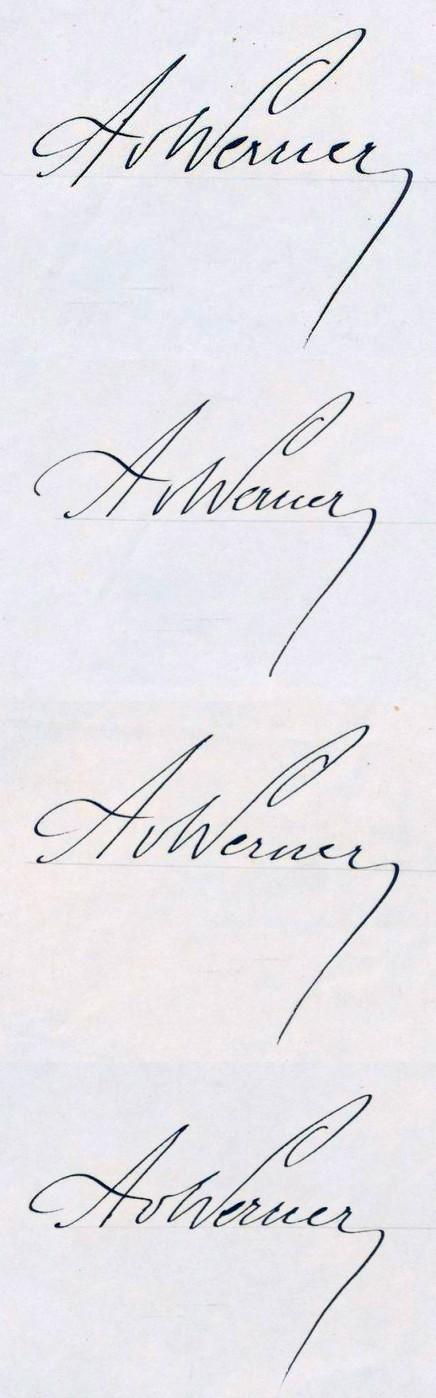 A v Werner
A v Werner
A v Werner
A v Werner